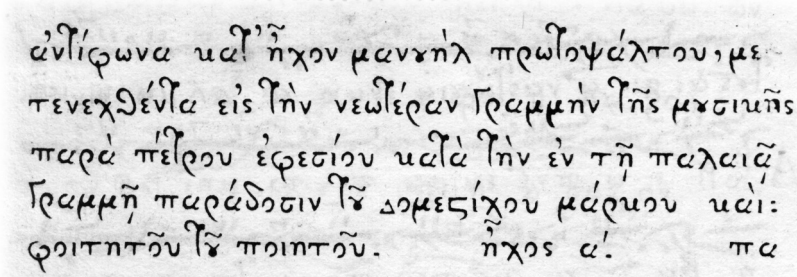 ἀντίφωνα κατ' ἦχον μανȣὴλ πρωτοψάλτου, με
τενεχθέντα εἰς τὴν νεωτέραν γραμμὴν τῆς μȣσικῆς
παρὰ πέτρου ἐφεσίου κατὰ τὴν ἐν τῇ παλαιᾷ
γραμμῇ παράδοσιν τȣ͂ δομεϛίχου μάρκου καὶ:
φοιτητοῦ τȣ͂ ποιητοῦ. ἦχος α'. πα